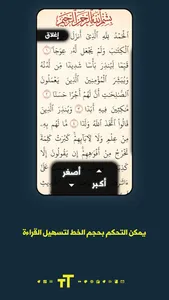 بِسْمِ اللَّهِ الرَّحْمَٰنِ الرَّحِيمِ
إغلاق
الْحَمْدُ لِلَّهِ الَّذِي أَنزَلَ
الْكِتَابَ وَلَمْ يَجْعَل لَّهُ عِوَجًا ۜ ١
قَيِّمًا لِّيُنذِرَ بَأْسًا شَدِيدًا مِّن لَّدُنْهُ
وَيُبَشِّرَ الْمُؤْمِنِينَ الَّذِينَ يَعْمَلُونَ
الصَّالِحَاتِ أَنَّ لَهُمْ أَجْرًا حَسَنًا ٢
مَّاكِثِينَ فِيهِ أَبَدًا ٣ وَيُنذِرَ الَّذِينَ
قَالُوا اتَّخَذَ اللَّهُ وَلَدًا ٤ مَّا لَهُم بِهِ
مِنْ عِلْمٍ وَلَا لِآبَائِهِمْ كَبُرَتْ كَلِمَةً
تَخْرُجُ مِنْ أَفْوَاهِهِمْ إِن يَقُولُونَ
أصغر
أكبر
يمكن التحكم بحجم الخط لتسهيل القراءة